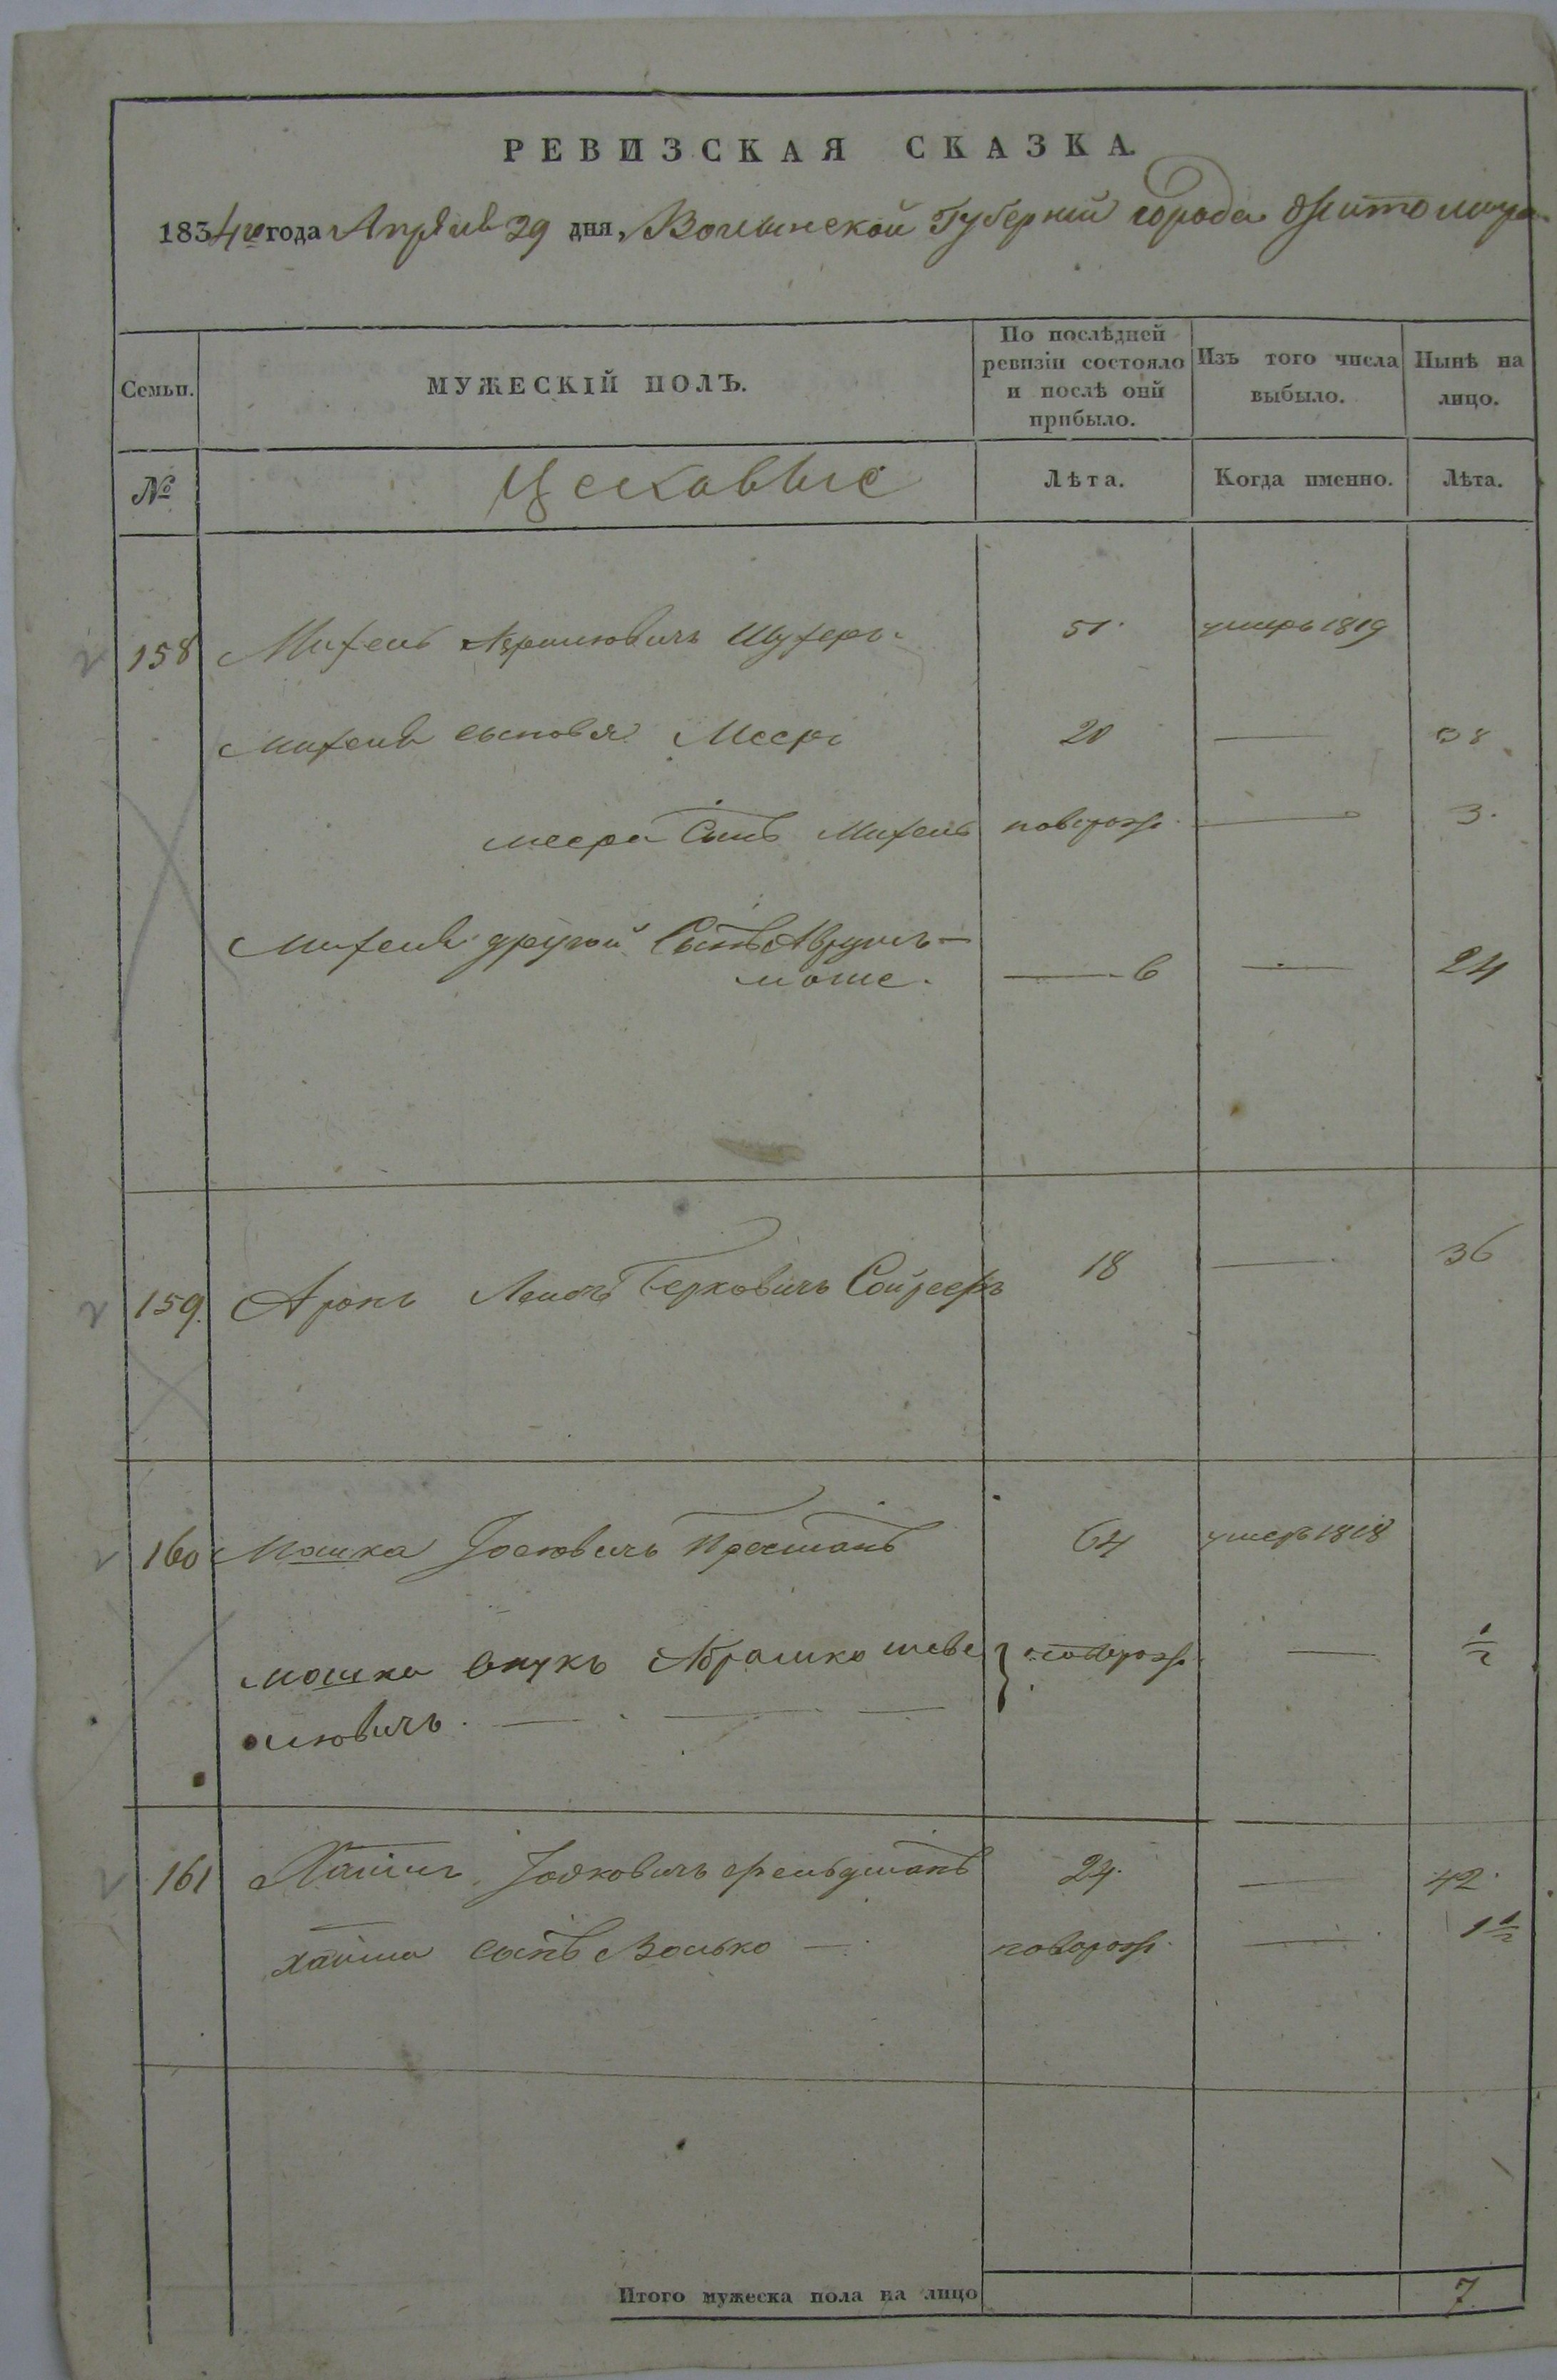 РЕВИЗСКАЯ СКАЗКА.
1834го года Апреля 29 дня, Волынской Губернии города Житомира
Семьи. МУЖЕСКІЙ ПОЛЪ. По послѣдней ревизіи состояло и послѣ оній прибыло. Изъ того числа выбыло. Нынѣ на лицо.
№ Цеховые Лѣта. Когда именно. Лѣта.
158 Михель Лершковичъ Шуферъ. 51. умеръ 1819
Михеля сыновья Мееръ 20 — 38
меера Сынъ Михель новорож. — 3.
Михеля другой Сынъ Аврумъ-
моше. — 6 — 24
159. Аронъ Лейбъ Берковичъ 18 — 36
160 Мошка Іосьовичъ 64 умеръ 1818
мошка внукъ Абрамко шеве } новорож. — 1/2
олювичъ. — . — —
161 Хаимъ Іосковичъ Фельдманъ 24. — 42.
хаима сынъ Волько — новорож. — 1 1/2
Итого мужеска пола на лицо 7